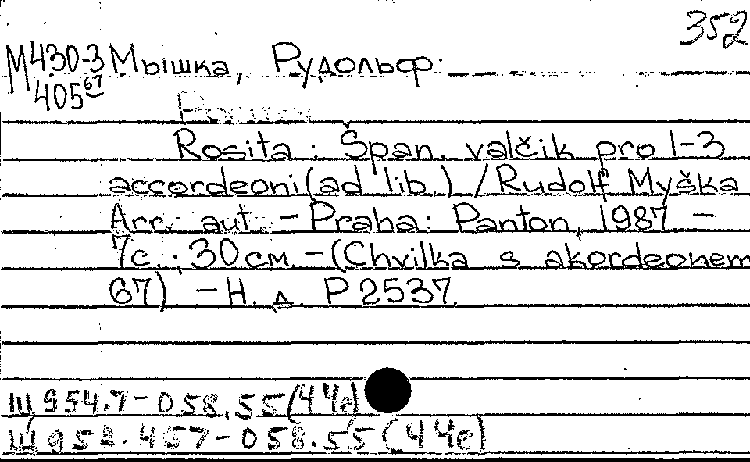 352
М430-3 Мышка, Рудольф.
405 67
Rosita : Špan. valčik pro 1-3
accordeoni (ad lib.) / Rudolf Myška
Arr. aut. - Praha: Panton, 1987 -
7с.; 30см. - (Chvilka s akordeonem
67) - Н. д. P 2537.
Щ954.7-058.55(44е)
Щ952.457-058.55(44е)